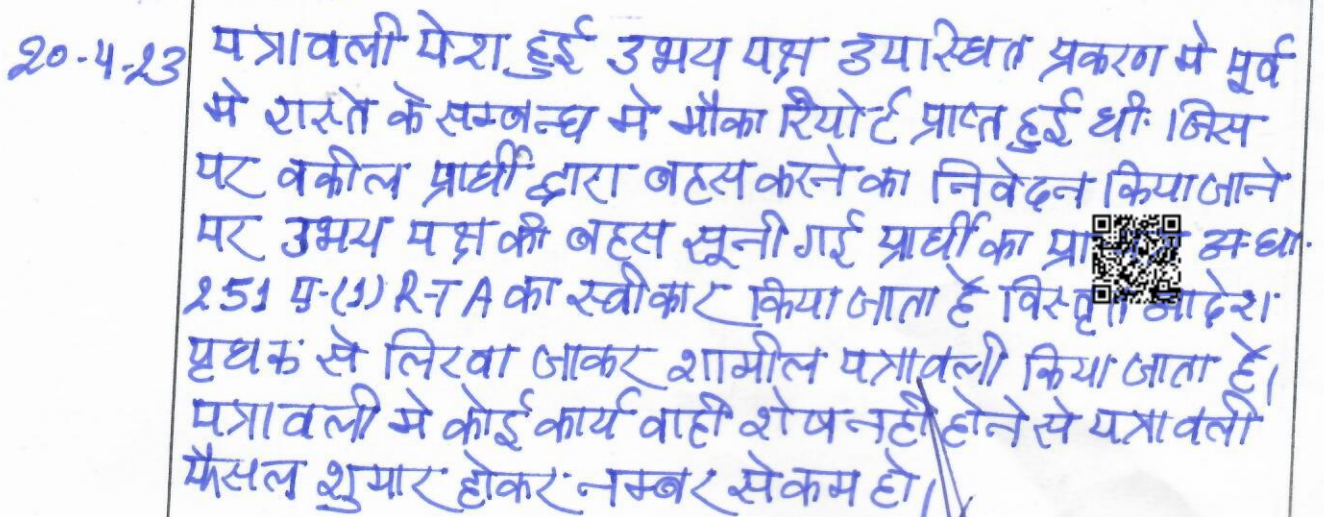 20-4-23 पत्रावली पेश हुई उभय पक्ष उपास्थित प्रकरण मे पूर्व
मे रास्ते के सम्बन्ध मे मौका रिपोर्ट प्राप्त हुई थी। जिस
पर वकील प्रार्थी द्वारा बहस करने का निवेदन किया जाने
पर उभय पक्ष की बहस सूनी गई प्रार्थी का प्रा अ धा.
251 ए-(1) R-T A का स्वीकार किया जाता है विस्तृत आदेश
पृथक से लिखा जाकर शामील पत्रावली किया जाता है।
पत्रावली मे कोई कार्य वाही शेष नही होने से पत्रावली
फैसल शुमार होकर नम्बर से कम हो।